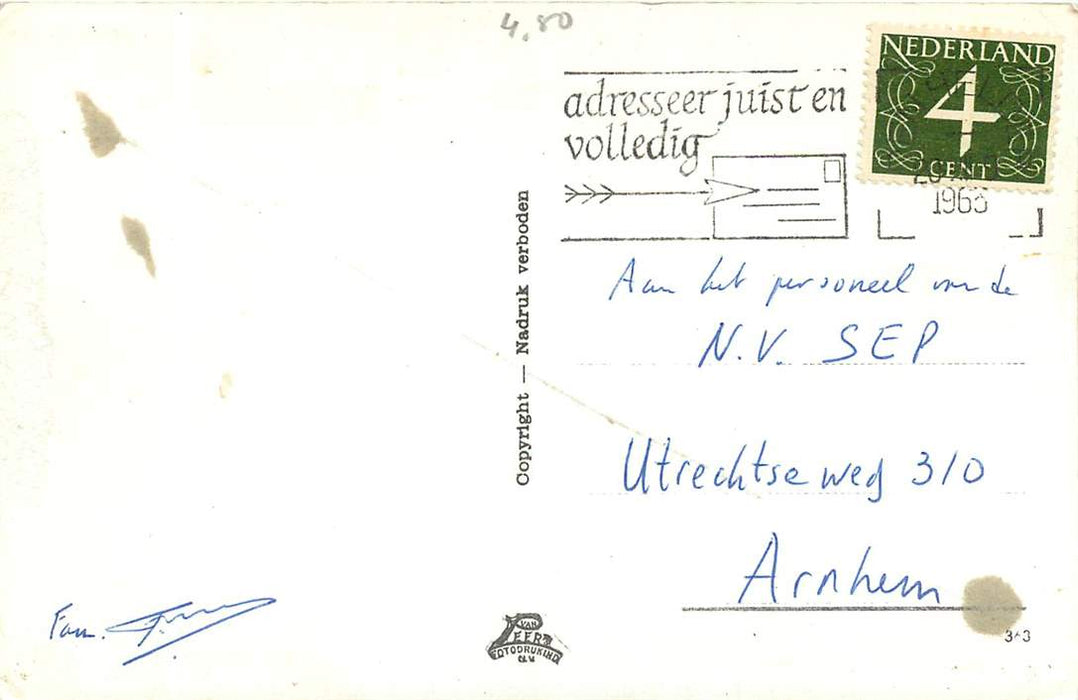 4,80
NEDERLAND
4
CENT
adresseer juist en
volledig
1963
Copyright — Nadruk verboden
Aan het personeel van de
N.V. SEP
Utrechtseweg 310
Arnhem
Fam.
VAN
LEER'S
FOTODRUKIND.
N.V.